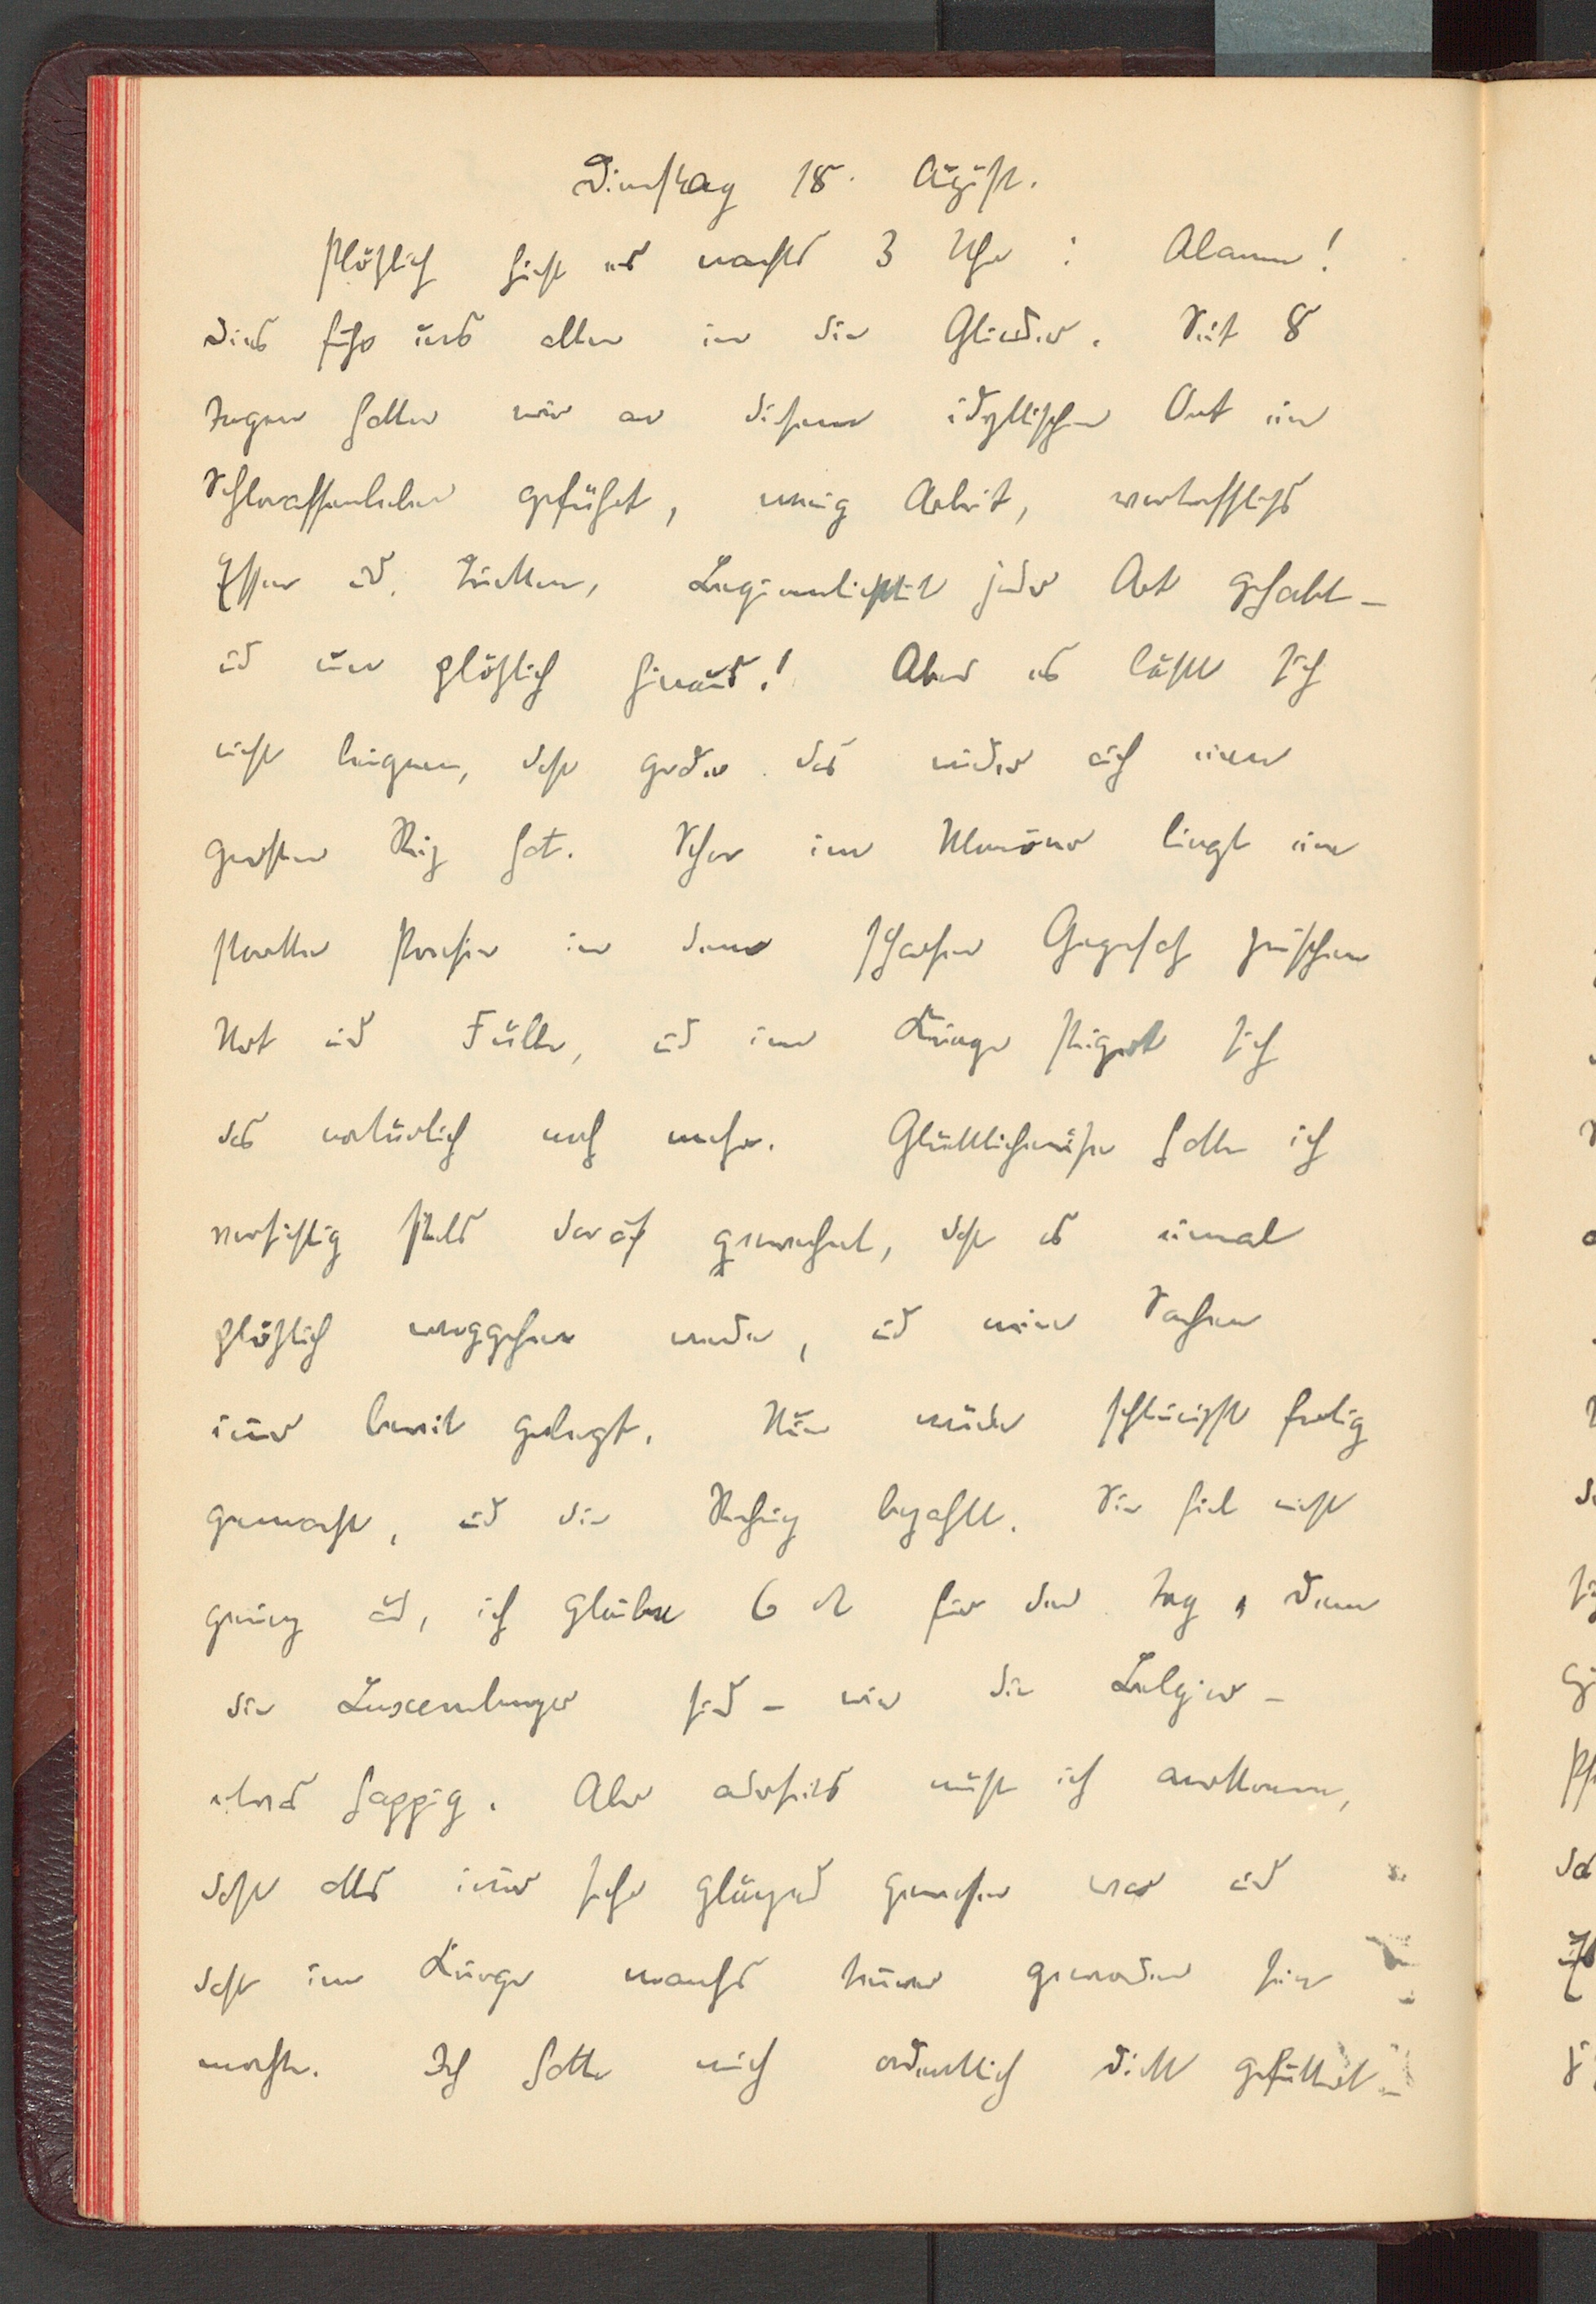 Dienstag 18. August.
Plötzlich hieß es nachts 3 Uhr: Alarm!
Dies fuhr uns allen in die Glieder. Seit 8
Tagen hatten wir an diesem idyllischen Ort ein
Schlaraffenleben geführt, wenig Arbeit, vortreffliches
Essen und Trinken, Bequemlichkeit jeder Art gehabt –
und nun plötzlich hinaus! Aber es läßt sich
nicht leugnen, daß gerade das wieder auch einen
großen Reiz hat. Schon im Manöver liegt eine
starke Poesie in dem scharfen Gegensatz zwischen
Not und Fülle, und im Kriege steigert sich
das natürlich noch mehr. Glücklicherweise hatte ich
vorsichtig stets darauf gerechnet, daß es einmal
plötzlich weggehen werde, und meine Sachen
immer bereit gelegt. Nun wurde schleunigst fertig
gemacht, und die Rechnung bezahlt. Sie fiel nicht
gering aus, ich glaube 6 M für den Tag, denn
die Luxemburger sind – wie die Belgier –
etwas happig. Aber andrerseits mußte ich anerkennen,
daß alles immer sehr glänzend gewesen war und
daß im Kriege manches teurer geworden sein
mochte. Ich hatte mich ordentlich dick gefüttert –